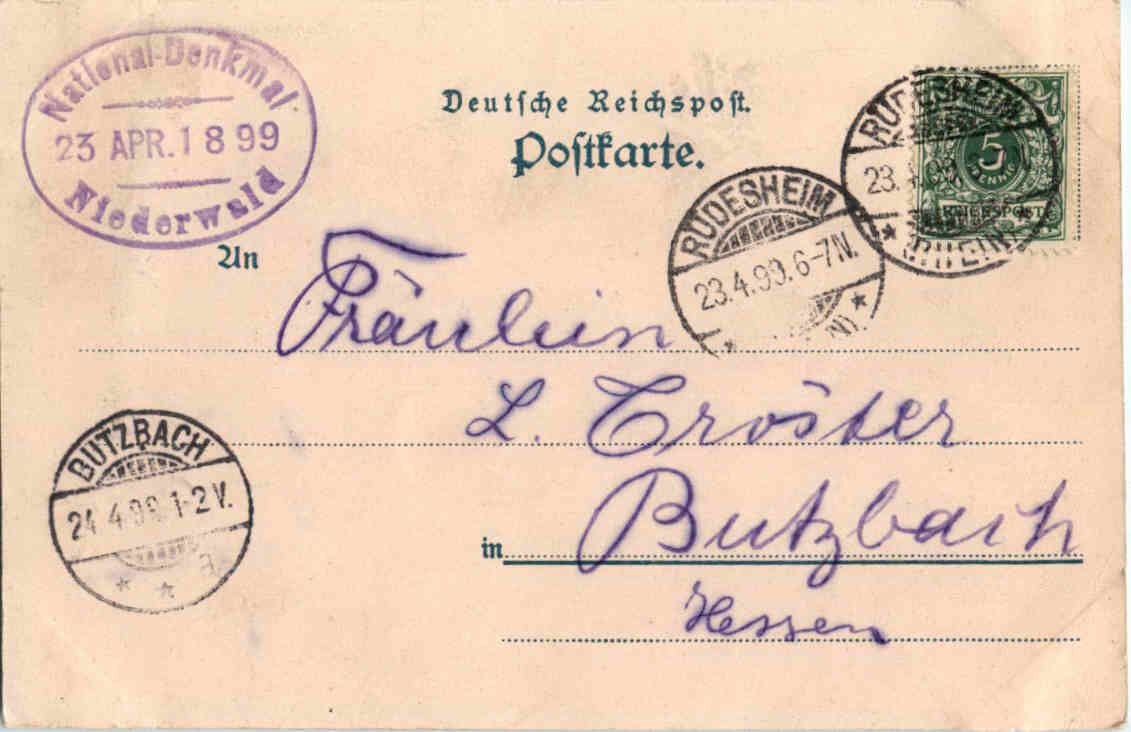 National-Denkmal
23 APR.1899
Niederwald
Deutsche Reichspost.
Postkarte.
RÜDESHEIM
23.4.99.
(RHEIN)
5
PFENNIG
REICHSPOST
RÜDESHEIM
23.4.99.6-7N.
An
Fräulein
L. Tröster
in Butzbach
Hessen
BUTZBACH
24.4.99.1-2V.